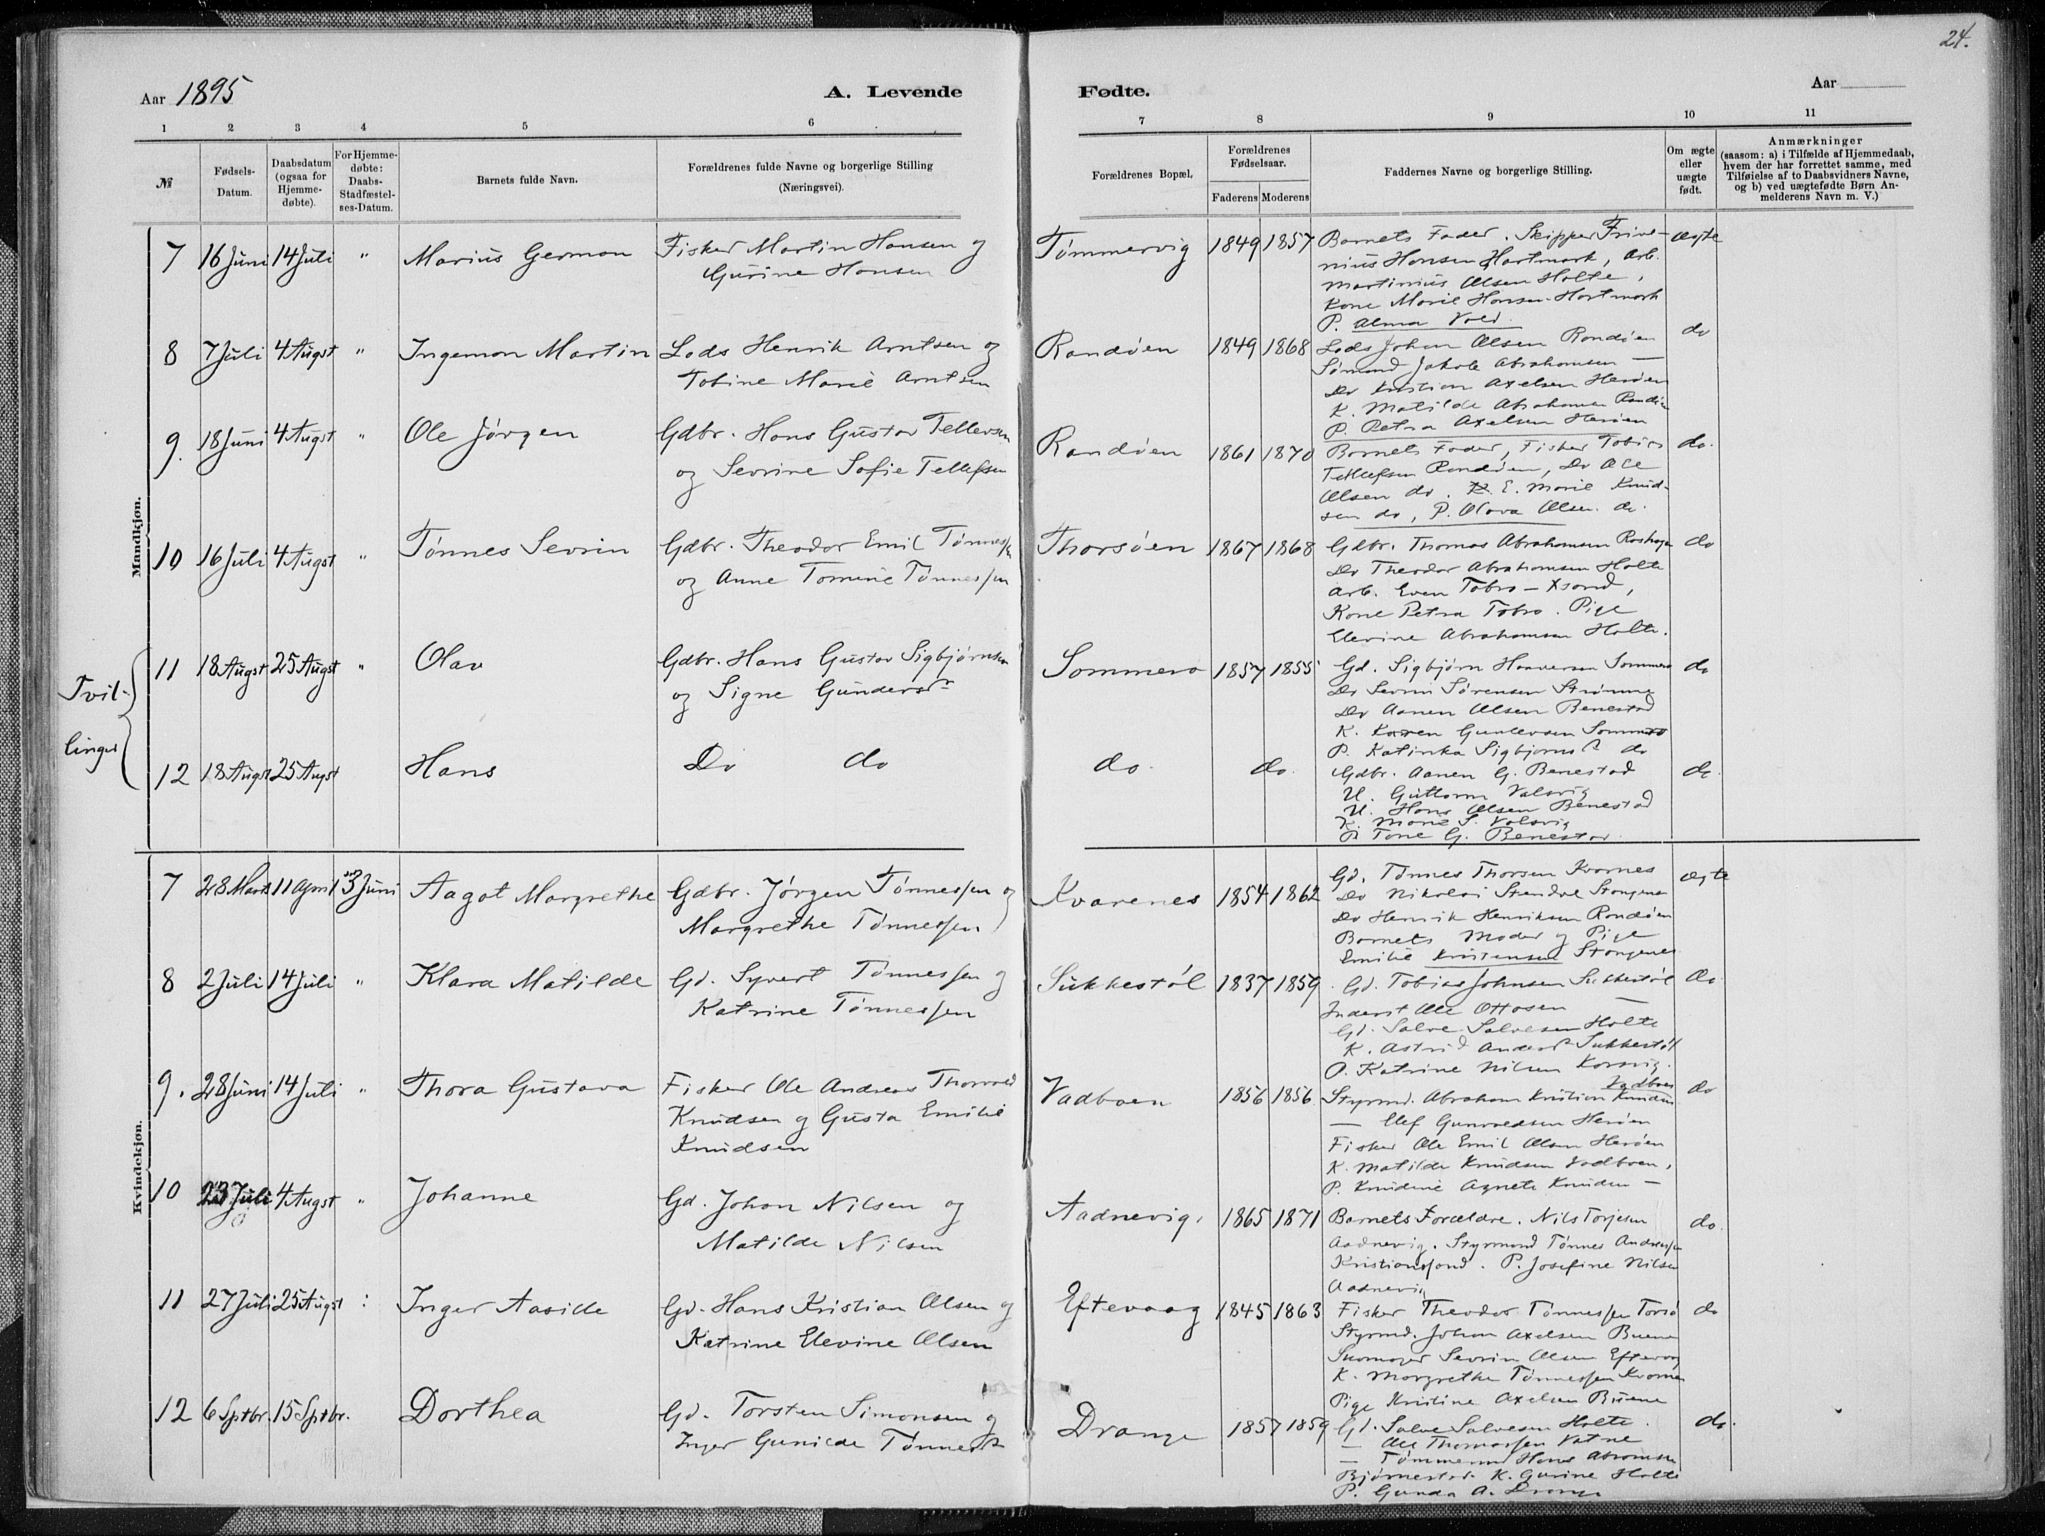 24.
Aar 1895
A. Levende
Fødte.
Aar
1 2 3 4 5 6 7 8 9 10 11
№
Fødsels-
Datum.
Daabsdatum
(ogsaa for
Hjemme-
døbte).
For Hjemme-
døbte:
Daabs-
Stadfæstel-
ses-Datum.
Barnets fulde Navn.
Forældrenes fulde Navne og borgerlige Stilling
(Næringsvei).
Forældrenes Bopæl.
Forældrenes
Fødselsaar.
Faderens Moderens
Faddernes Navne og borgerlige Stilling.
Om ægte
eller
uægte
født.
Anmærkninger
(saasom: a) i Tilfælde af Hjemmedaab,
hvem der har forrettet samme, med
Tilføielse af to Daabsvidners Navne,
og b) ved uægtefødte Børn An-
melderens Navn m. V.)
Mandkjøn.
7 16 Juni 14 Juli " Marius German
Fisker Martin Hansen og
Gurine Hansen
Tømmervig 1849 1857
Barnets Fader. Skipper
Hansen Hartmark, Arb.
Martinius Olsen Holte,
Kone Marie Hansen Hartmark
P. Alma Vold.
ægte
8 7 Juli 4 Augst " Ingeman Martin
Lods Henrik Arntsen og
Tobine Marie Arntsen
Randøen 1849 1868
Lods Johan Olsen Randøen
Sømand Jakob Abrahamsen —
Do Kristian Axelsen Herøen
K. Matilde Abrahamsen Randøen
P. Petra Axelsen Herøen
do
9. 18 Juni 4 Augst " Ole Jørgen
Gdbr. Hans Gustav Tellefsen
og Sevrine Sofie Tellefsen
Randøen 1861 1870
Barnets Fader, Fisker Tobias
Tellefsen Randøen, Do Ole
Olsen do. E. Marie Knud-
sen do, P. Olava Olsen do.
do.
10 16 Juli 4 Augst " Tønnes Sevrin
Gdbr. Theodor Emil Tønnessen
og Anne Tomine Tønnessen
Thorsøen 1867 1868
Gdbr. Thomas Abrahamsen
Do Theodor Abrahamsen Holte
Arb. Even Tobro — Xsand,
Kone Petra Tobro. Pige
Elevine Abrahamsen Holte.
do
Tvil-
linger
11 18 Augst 25 Augst " Olav
Gdbr. Hans Gustav Sigbjørnsen
og Signe Gundersdr
Sommero 1857 1855
Gd. Sigbjørn Haaversen Sommero
Do Sevrin Sørensen Strømme
Do Aanen Olsen Benestad
K. Karen Gunlevsen Sommero
P. Katinka Sigbjørnsdr do
do
12 18 Augst 25 Augst Hans
Do do
do. do.
Gdbr. Aanen G. Benestad
U. Guttorm Valsvig
U. Hans Olsen Benestad
K. Marie S. Valsvig
P. Tone G. Benestad.
do.
Kvindekjøn.
7 28 Marts 11 April 3 Juni Aagot Margrethe
Gdbr. Jørgen Tønnessen og
Margrethe Tønnessen
Kvarenes 1854 1862
Gd. Tønnes Thorsen Kvarnes
Do Nikolai Stangenes
Do Henrik Henriksen Randøen
Barnets Moder og Pige
Emilie Kristensen Stangenes
ægte
8 2 Juli 14 Juli " Klara Matilde
Gd. Syvert Tønnessen og
Katrine Tønnessen
Sukkestøl 1837 1859
Gd. Tobias Johnsen Sukkestøl
Inderst Ole Ottosen —
Gd. Salve Salvesen Holte
K. Astrid Andersdr Sukkestøl
P. Katrine Nilsen Korsvig.
do.
9. 28 Juni 14 Juli " Thora Gustava
Fisker Ole Andreas Thorvald
Knudsen og Gusta Emilie
Knudsen
Vadboen 1856 1856
Vadboen
Styrmd. Abraham Kristian Knudsen
— Elef Gunvaldsen Herøen
Fisker Ole Emil Olsen Herøen
K. Matilde Knudsen Vadboen,
P. Knudine Agnete Knudsen —
do
10 23 Juli 4 Augst " Johanne
Gd. Johan Nilsen og
Matilde Nilsen
Aadnevig. 1865 1871
Barnets Forældre. Nils Torjesen
Aadnevig. Styrmand Tønnes Andersen
Kristianssand. P. Josefine Nilsen
Aadnevig
do.
11 27 Juli 25 Augst : Inger Aaside
Gd. Hans Kristian Olsen og
Katrine Elevine Olsen
Eftevaag 1845 1863
Fisker Theodor Tønnessen Torsø
Styrmd. Johan Axelsen Buene
Skomager Sevrin Olsen Eftevaag
K. Margrethe Tønnessen Kvarnes
Pige Kristine Axelsen Buene
do
12 6 Sptbr. 15 Sptbr. Dorthea
Gd. Torsten Simonsen og
Inger Gunilde Tønnesdr
Drange 1857 1859
Gd. Salve Salvesen Holte.
— Ole Thomassen Vatne
— Tømmermd Hans Abramsen
Bjørnestad K. Gurine Holte
P. Gunda A. Drange
do.